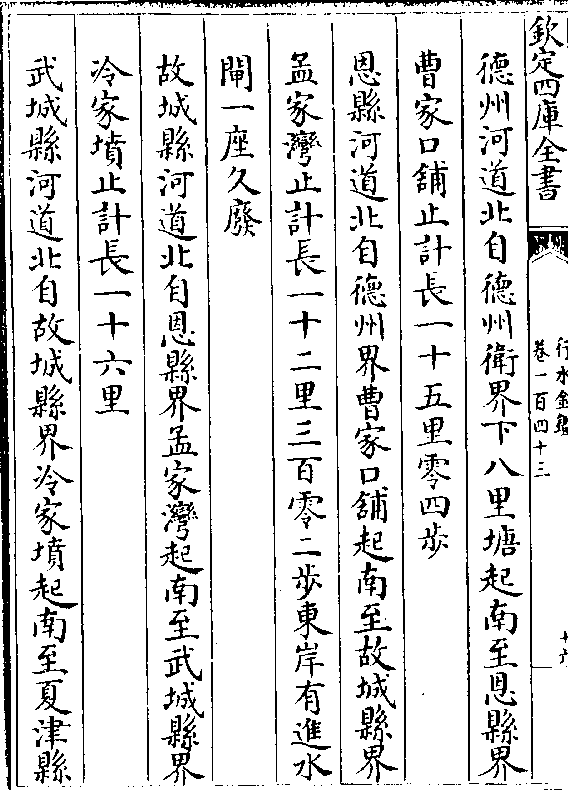 欽定四庫全書
行水金鑑
卷一百四十三
十六
德州河道北自德州衛界下八里塘起南至恩縣界
曹家口舖止計長一十五里零四步
恩縣河道北自德州界曹家口舖起南至故城縣界
孟家灣止計長一十二里三百零二步東岸有進水
閘一座久廢
故城縣河道北自恩縣界孟家灣起南至武城縣界
冷家墳止計長一十六里
武城縣河道北自故城縣界冷家墳起南至夏津縣